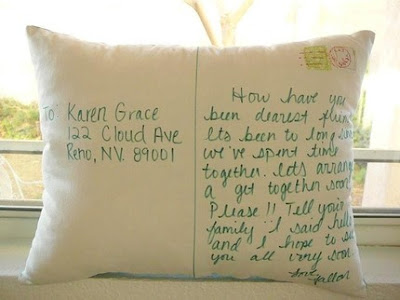 To Karen Grace
122 Cloud Ave
Reno, NV. 89001
How have you
been dearest
Its been to long
we've spent time
together. lets
a get together soon
Please!! Tell your
family I said hello
and I hope to see
you all very soon.
love